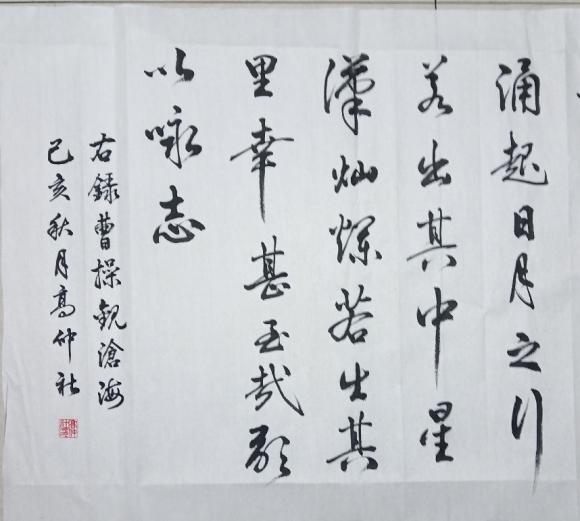 涌起日月之行
若出其中星
漢灿爛若出其
里幸甚至哉歌
以咏志
右録曹操觀滄海
己亥秋月高仲社